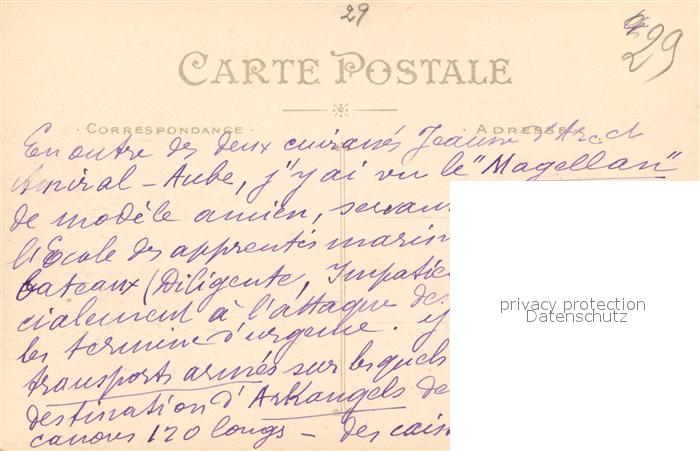 29
29
CARTE POSTALE
CORRESPONDANCE
ADRESSE
En outre des deux cuirassés Jeanne d'Arc et
Amiral-Aube, j'y ai vu le "Magellan"
de modèle ancien, servant
l'Ecole des apprentis marin
bateaux (Diligente, Impatie
cialement à l'attaque de
les termine d'urgence. y
transports armés sur lesquels
destination d'Arkangels de
canons 120 longs - des cais
privacy protection
Datenschutz